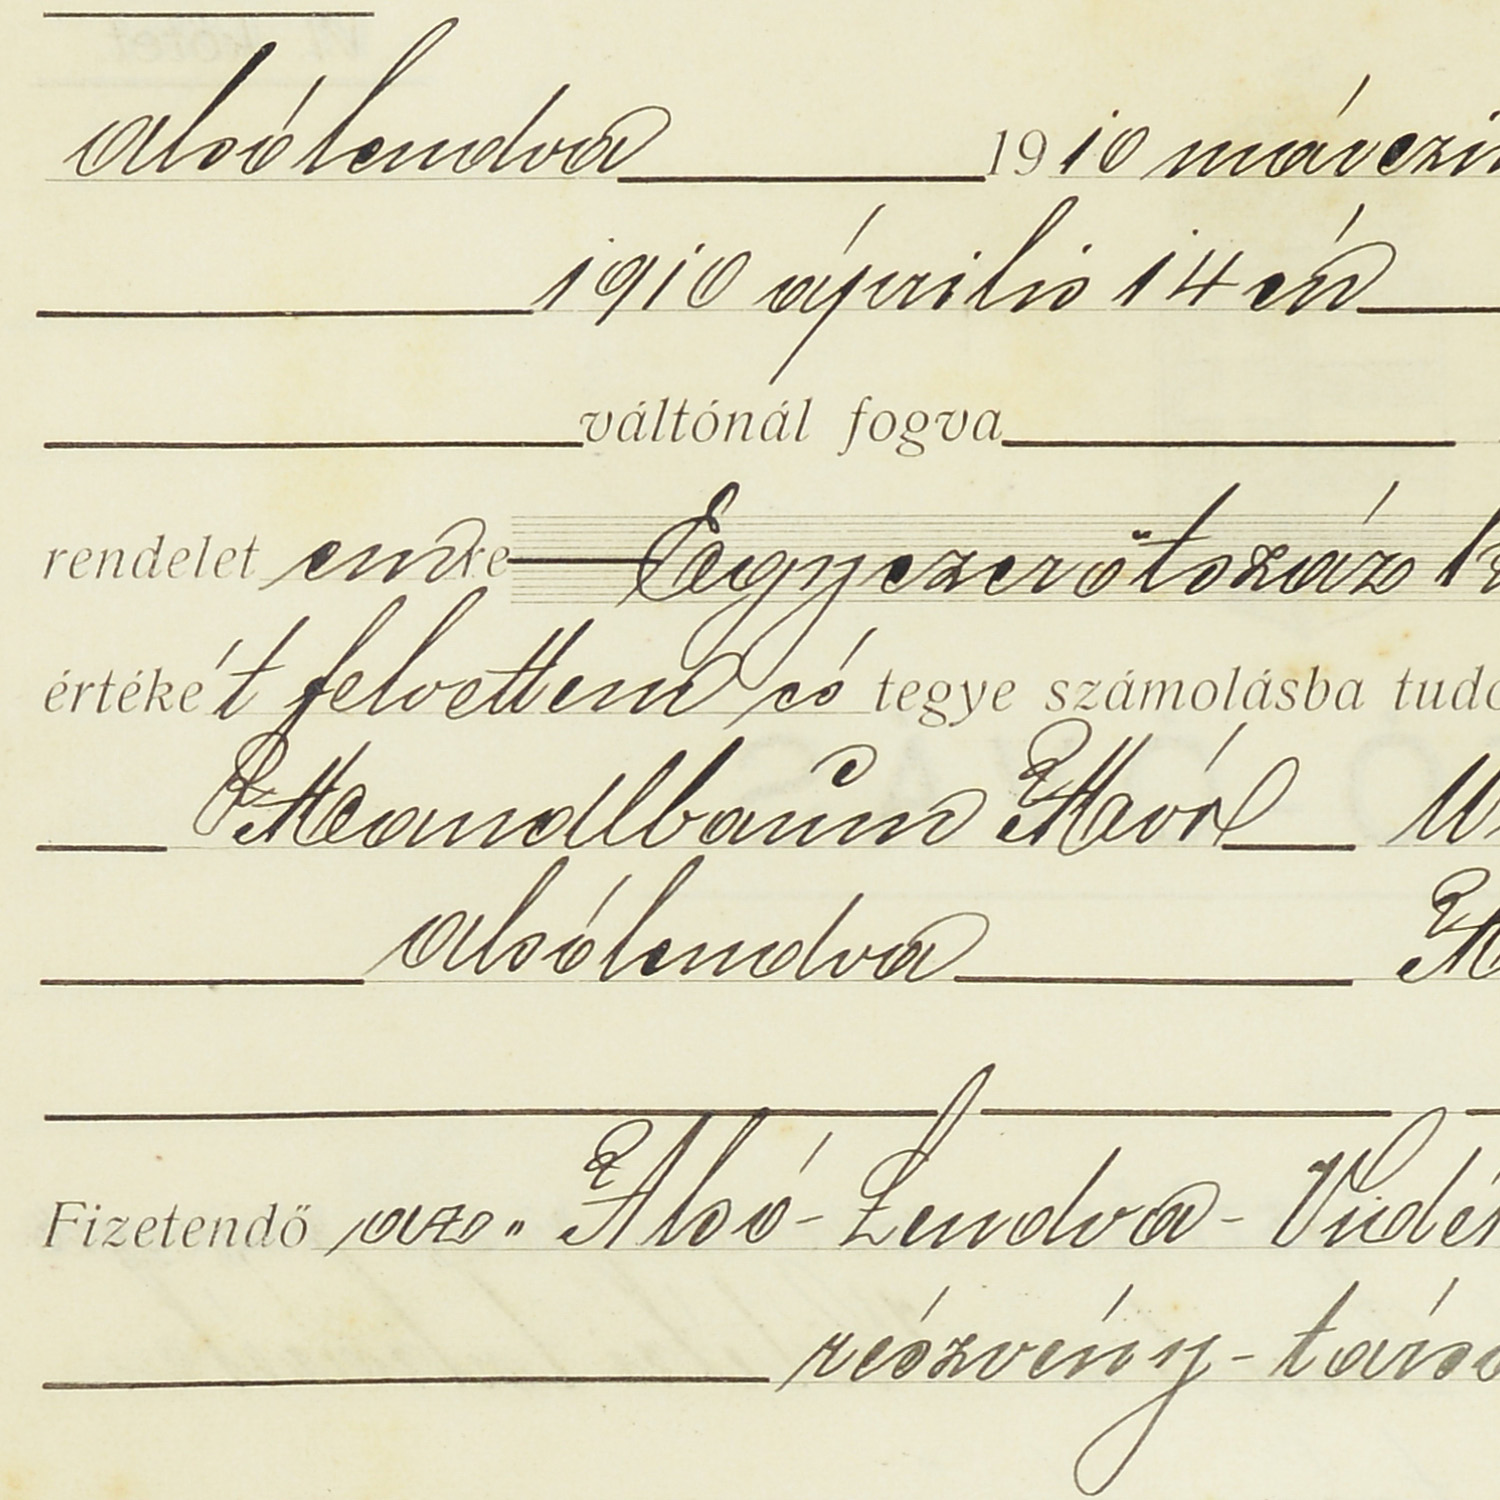 Alsólendva 1910 márczi
1910 április 14 én
váltónál fogva
rendelet emre Egyezerötszáz k
értékét felvettem és tegye számolásba tudo
Mandlbaum Mór W
Alsólendva M
Fizetendő az „Alsó-Lendva-Vidé
részvény-társ